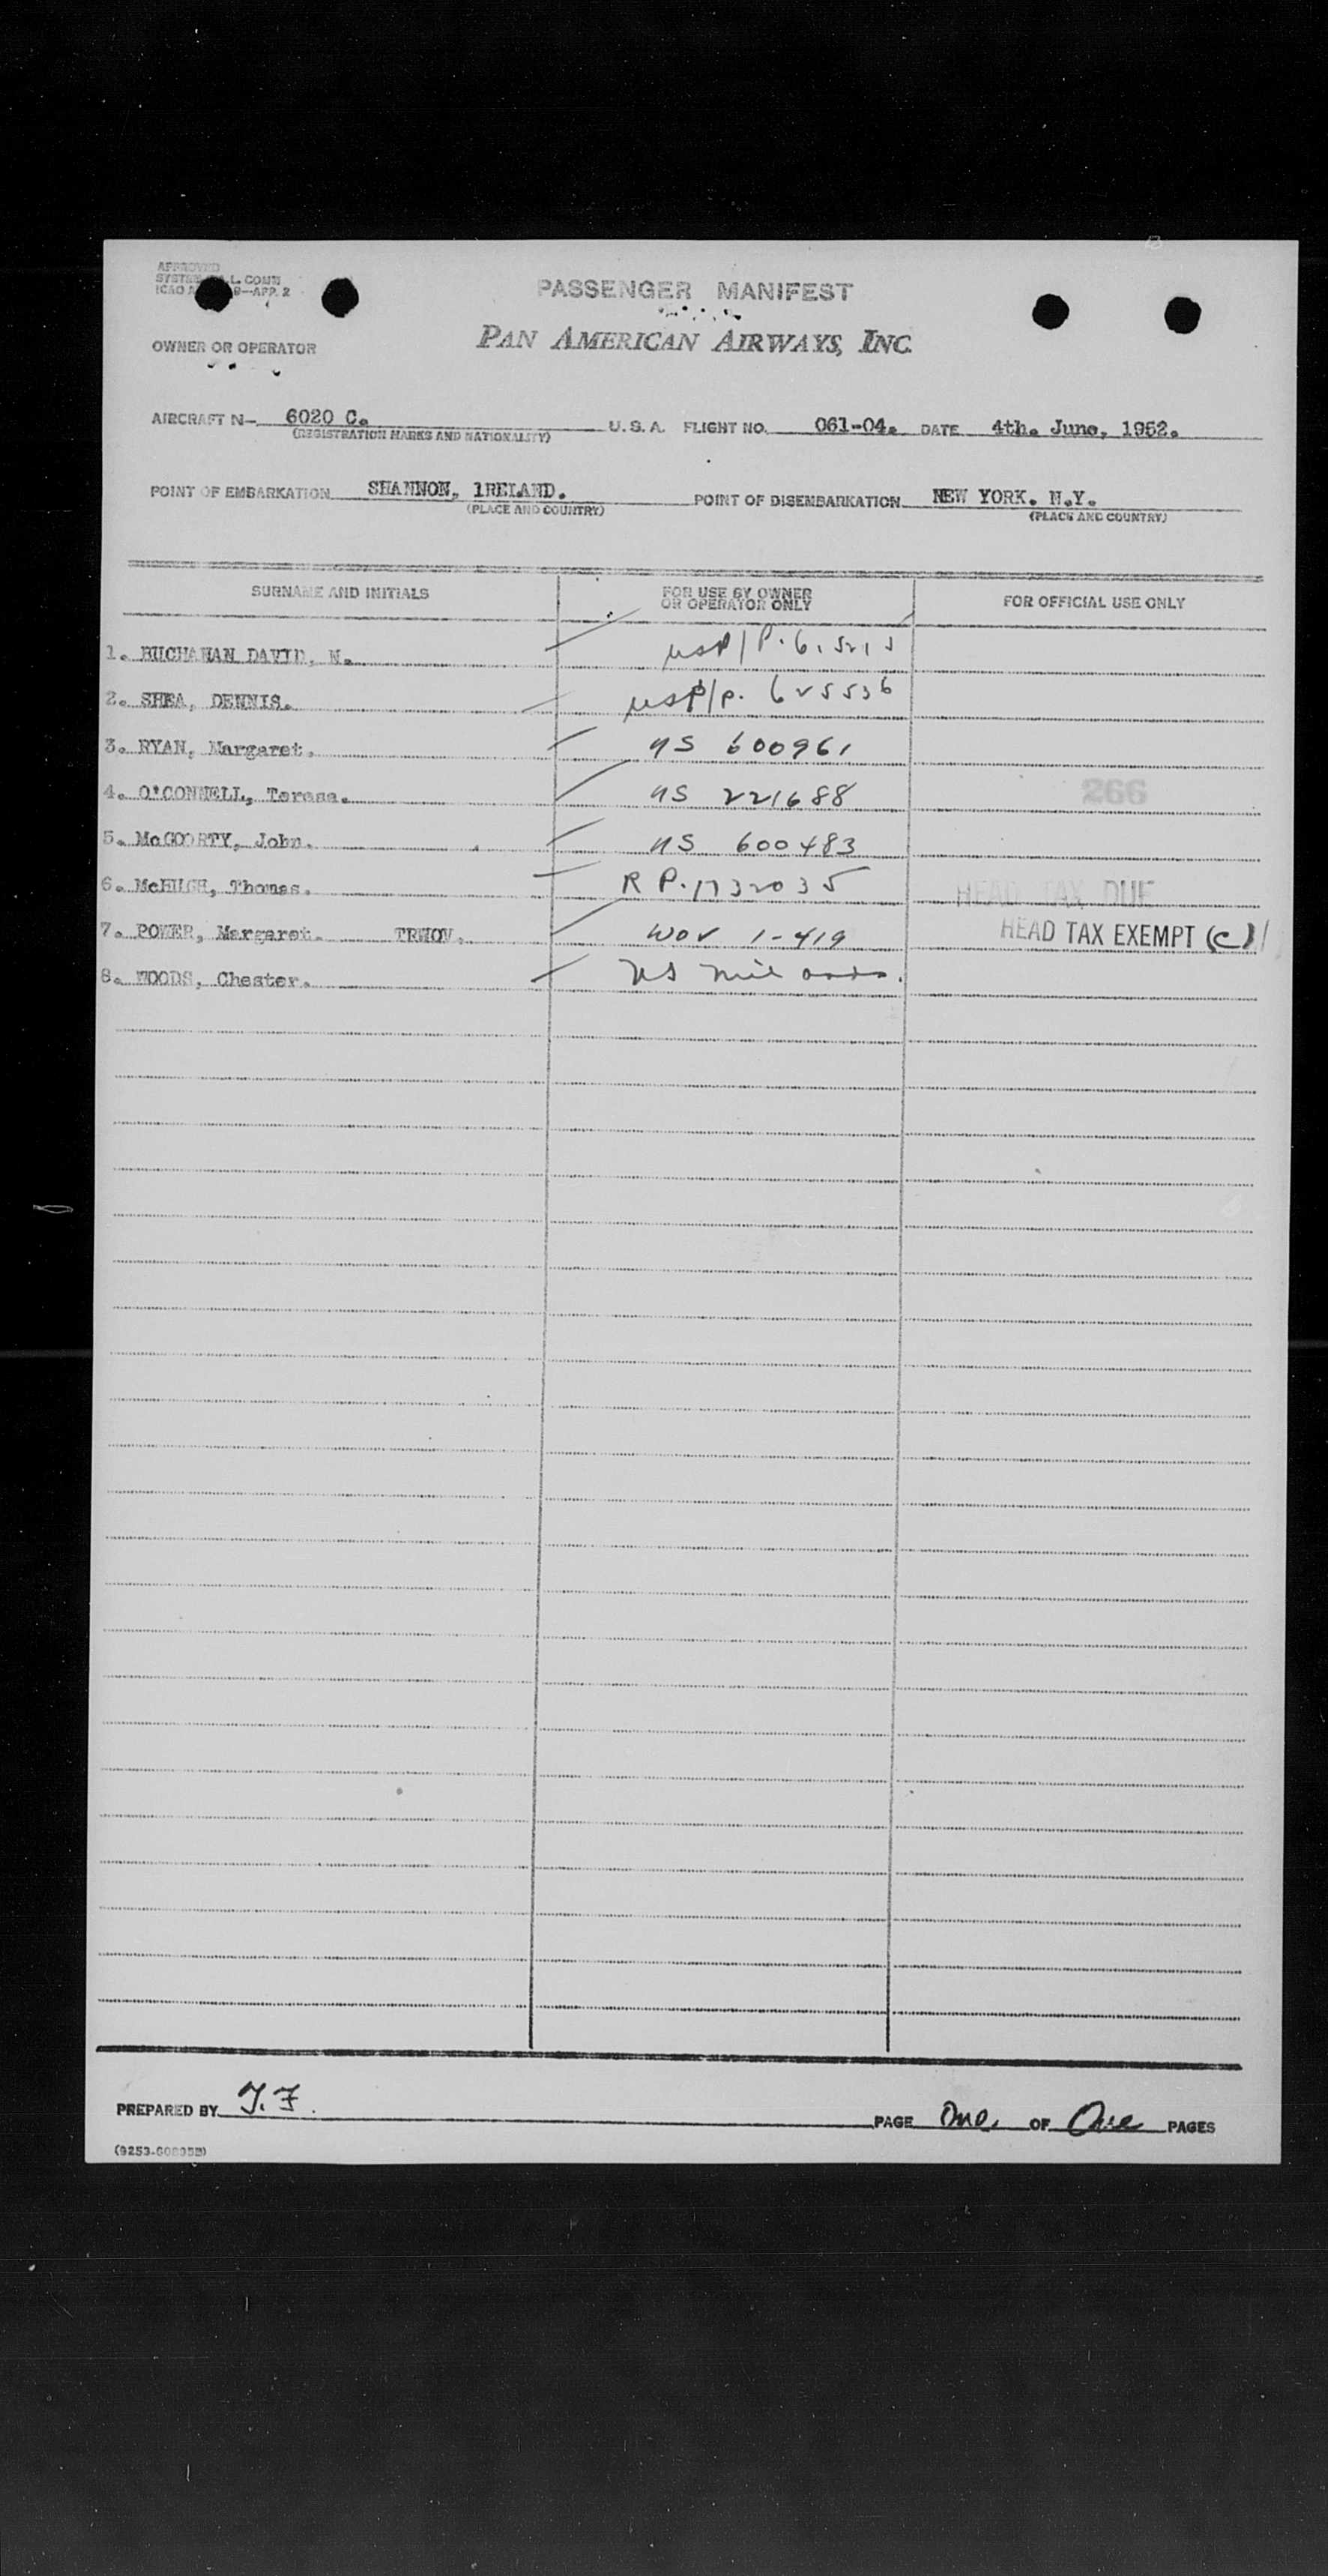 APPROVED
SYSTEM L. COMM
ICAO A 9—APP. 2
PASSENGER MANIFEST
PAN AMERICAN AIRWAYS, INC.
OWNER OR OPERATOR
AIRCRAFT N— 6020 C. U. S. A. FLIGHT NO. 061-04. DATE 4th. June, 1952.
(REGISTRATION MARKS AND NATIONALITY)
POINT OF EMBARKATION SHANNON, IRELAND. POINT OF DISEMBARKATION NEW YORK. N.Y.
(PLACE AND COUNTRY) (PLACE AND COUNTRY)
SURNAME AND INITIALS FOR USE BY OWNER OR OPERATOR ONLY FOR OFFICIAL USE ONLY
1. BUCHANAN DAVID, N. USP/P.
2. SHEA, DENNIS. USP/P. 625536
3. RYAN, Margaret. US 600961
4. O'CONNELL, Teresa. US 221688 266
5. McGOORTY, John. US 600483
6. McHUGH, Thomas. R P. 1732035 HEAD TAX DUE
7. POWER, Margaret. TRWOV. WOV 1-419 HEAD TAX EXEMPT (C)
8. WOODS, Chester. US mil
PREPARED BY PAGE One. OF One PAGES